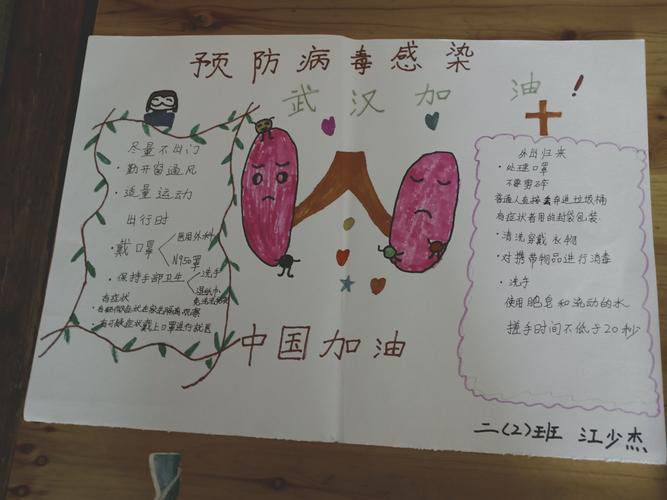 预防病毒感染
武汉加油!
尽量不出门
·勤开窗通风
·适量运动
出行时
·戴口罩
医用外科
N95口罩
·保持手部卫生
洗手
湿纸巾
免洗洗手液
有症状
中国加油
外出归来
·处理口罩
不要剪碎
普通人直接弃垃圾桶
有症状者用的封袋包装
·清洗穿戴衣物
·对携带物品进行消毒
·洗手
使用肥皂和流动的水
搓手时间不低于20秒
二(2)班 江少杰